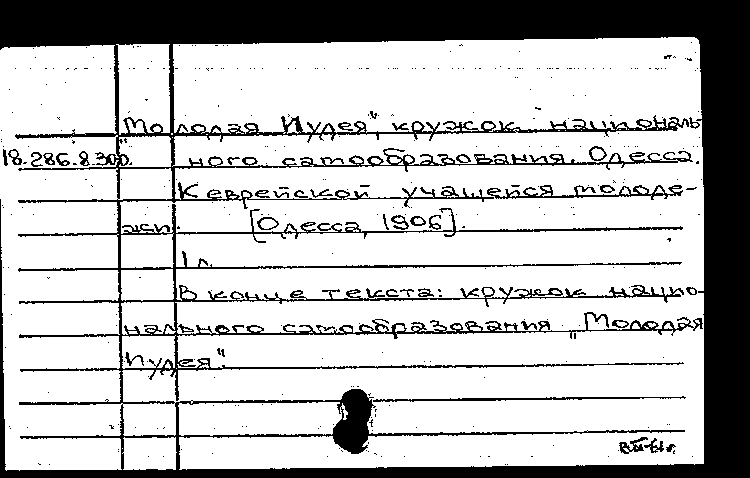 „Молодая Иудея", кружок националь-
18.286.8.300. ного самообразования. Одесса.
К еврейской учащейся молоде-
жи. [Одесса, 1906].
1 л.
В конце текста: кружок нацио-
нального самообразования „Молодая
Иудея".